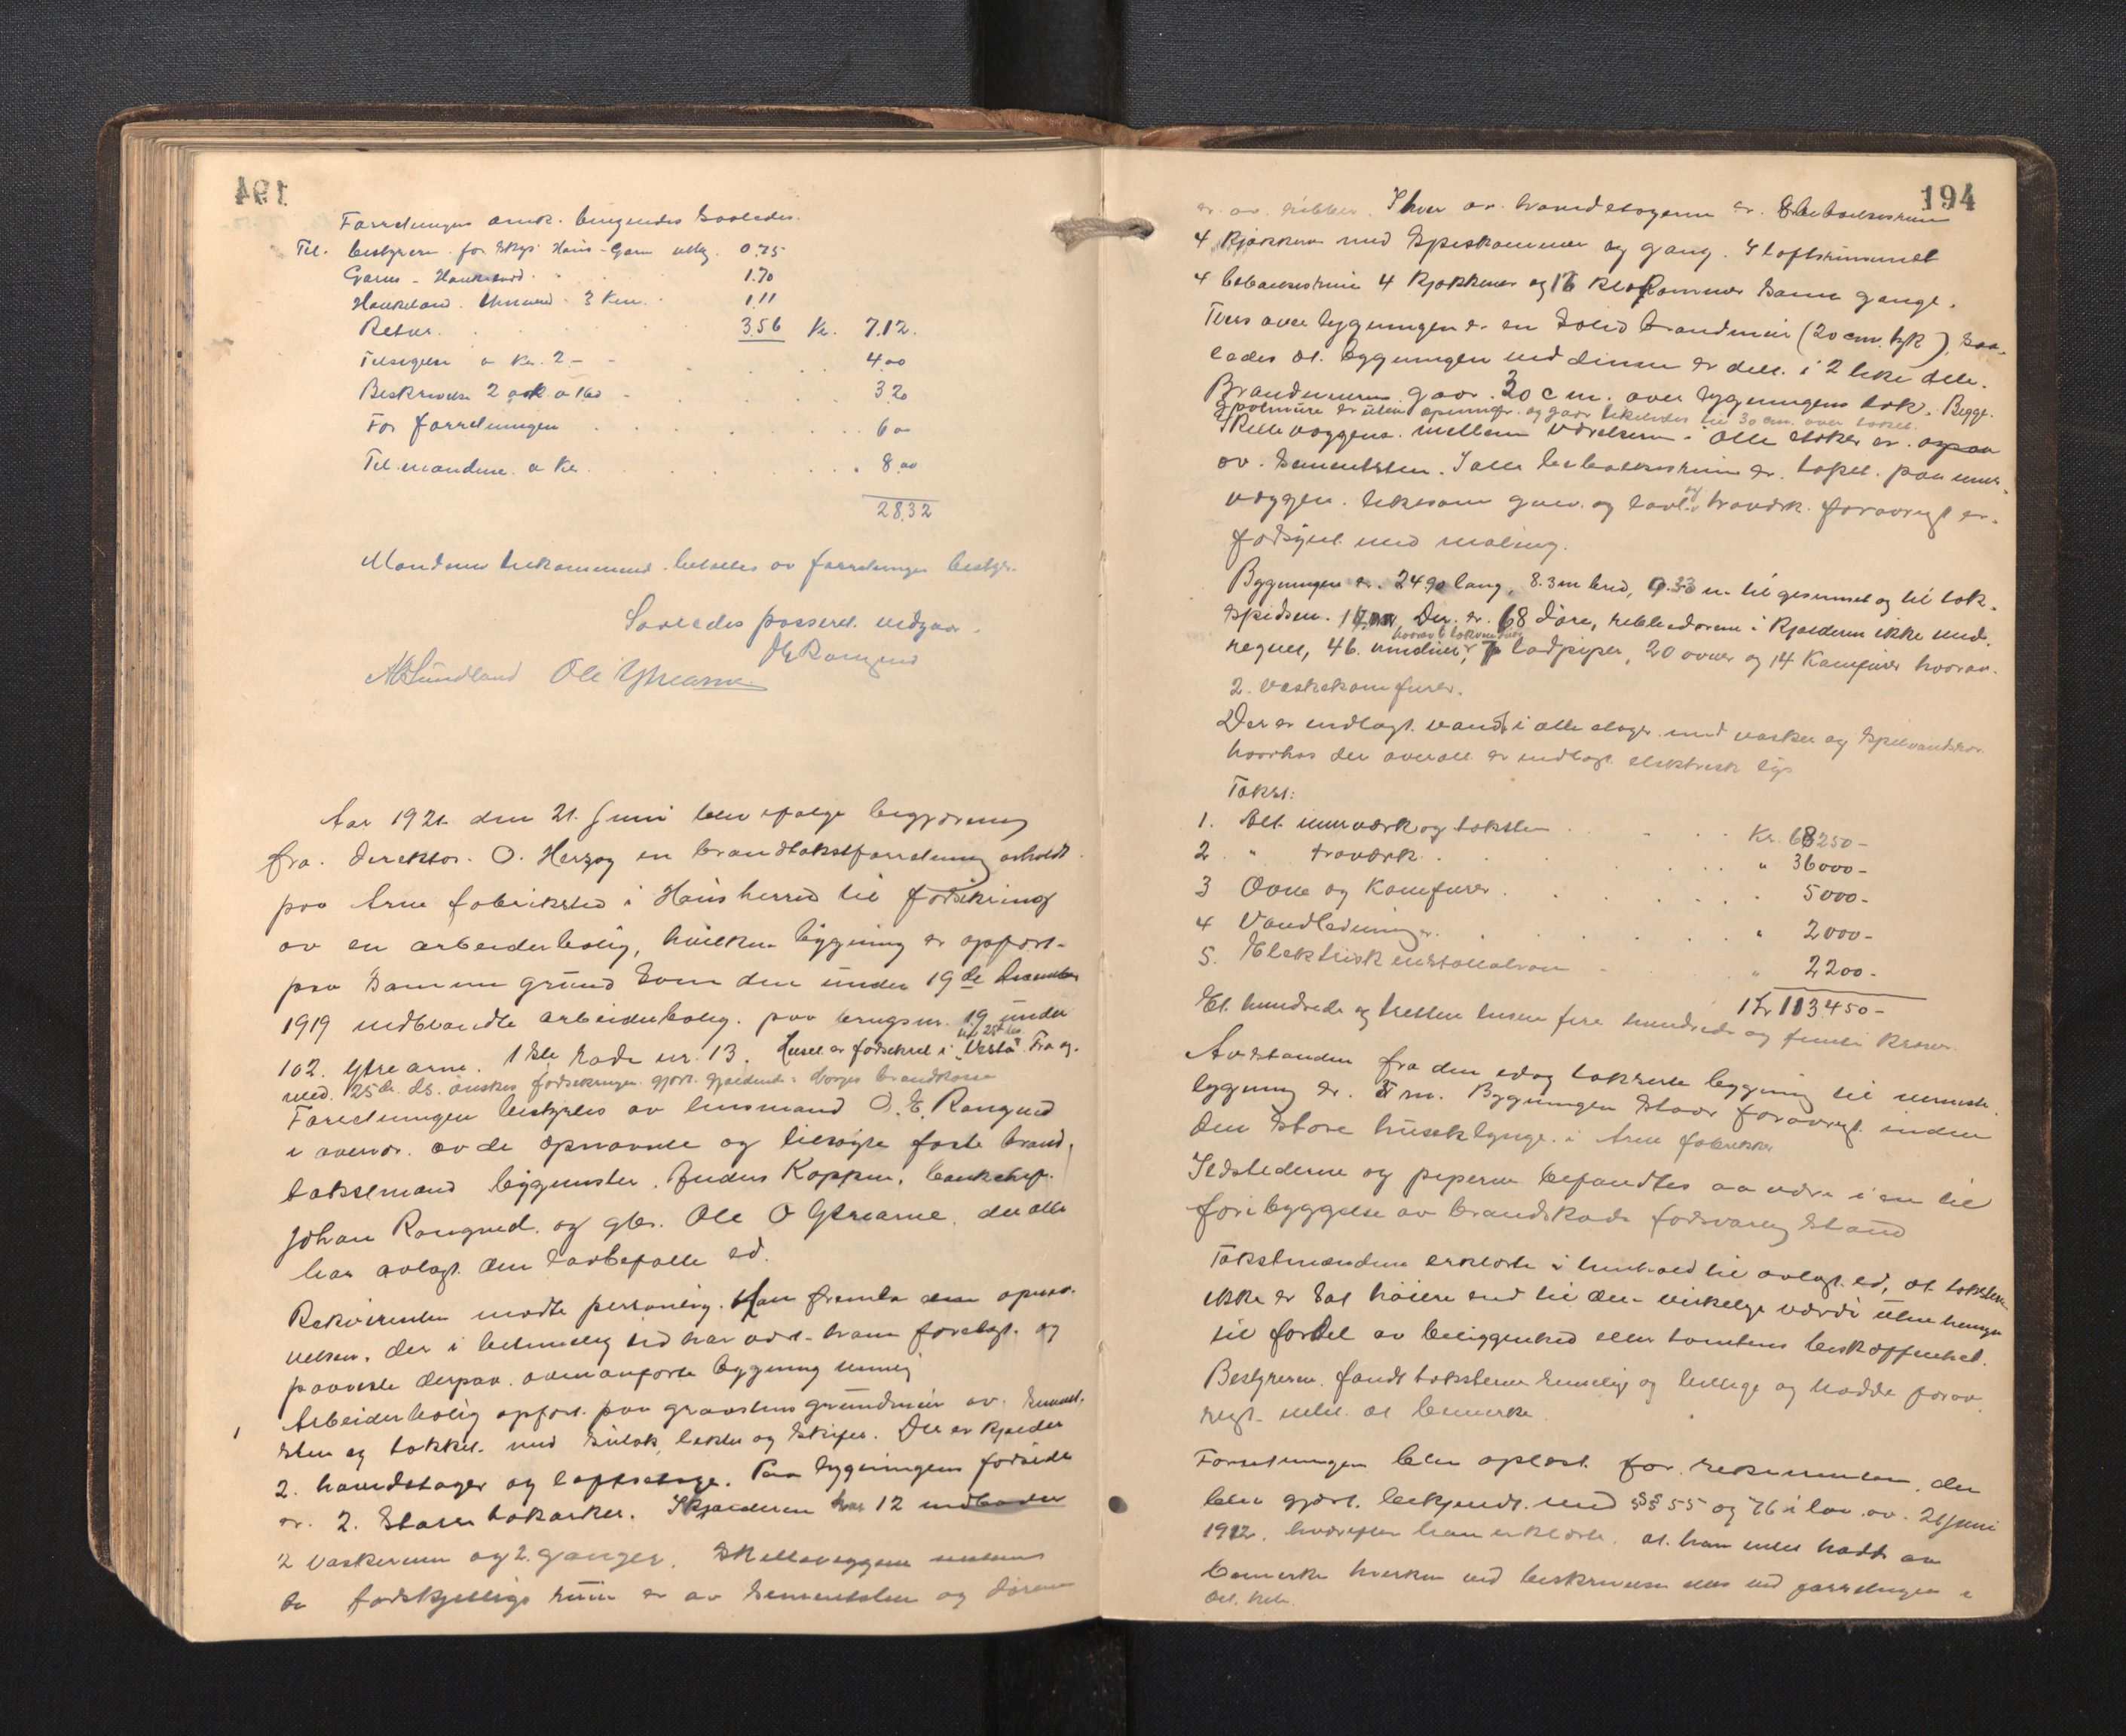 194
Forretningen omk. beregnedes saaledes.
Til. bestyreren for Skys Haus-Garn utlg. 0.75
Garnes - Haukeland 1.70
Haukeland. Unneland. 3 Km. 1.11
Retur. 3.56 Kr. 7.12.
Tilsigelse a Kr. 2 - 4.00
Beskrivelse 2 ark a 160 3.20
For forretningen 6.00
Til mændene a Kr. 8.00
28.32
Mændenes tilkommende betaltes av forretningens bestyr.
Saaledes passeret. vidgaar.
Ole Ytrearne
Aar 1921 den 21. Juni blev ifølge begjæring
fra. direktør. O. Herzog en brandtakstforretning avholdt
paa Arne fabriksted i Haus herred til forsikring
av en arbeiderbolig, hvilken bygning er opført
paa samme grund som den under 19de december
1919 nedbrændte arbeiderbolig. paa bruksnr. 19 under
102. Ytre arne. 1ste Rode nr. 13. Huset er forsikret i "Vesta". Fra og
med. 25de ds. ønskes forsikringen gjort gjældende i Norges brandkasse
Forretningen bestyredes av lensmand O. E. Rongved
i overvær av de opnævnte og tilsagte faste brand-
takstmænd bygmester. Anders Koppen, banksjef.
Johan Rongved. og gbr. Ole O Ytrearne, der alle
har avlagt den lovbefalte ed.
Rekvirenten mødte personlig. Han fremla opnæv-
nelsen. der i betimelig tid har vært ham forelagt. og
paaviste derpaa. ovenanførte bygning nemlig
1 Arbeiderbolig opført. paa graastens grundmur av. sement.
sten og takket. med sutak, lekter og skifer. Der er kjælder
2. hovedetager og loftsetage. Paa bygningens forside
er. 2. større takarker. I kjælderen har 12 indboder
2 vaskerum og 2. ganger. Skilleveggene mellem
de forskjellige rum er av sementsten og dørene
194
er. av. ribber. I hver av. hovedetagerne er. 8 beboelsesrum
4 kjøkkener med spiskammer og gang. I loftsrummet
4 beboelsesrum 4 kjøkkener og 16 klæskammer samt gange.
Tvers over bygningen er en solid brandmur (20 cm. tyk), saa-
ledes at. bygningen ved denne er delt. i 2 like dele.
Brandmuren gaar. 30 cm. over bygningens tak. Begge.
gavlmure er uten aapninger. og gaar likeledes til 30 cm. over taket.
Skilleveggene. mellem værelserne i alle etager er.
av. sementsten. I alle beboelsesrum er. tapet. paa mur-
veggen. likesom gulv. og loft. og træværk. forøvrigt er.
forsynt med maling.
Bygningen er. 24.90 lang, 8.3 m bred, 9.33 m. til gesimset og til tak-
spidsen. Der. er. 68 døre, ribbedørene i kjælderen ikke med-
regnet, 46. vinduer, hvorav 6 takvinduer, ladpiper, 20 ovner og 14 Komfurer hvorav.
2. vaskekomfurer.
Der er indlagt. vand i alle etager. med vasker og spildvandsrør.
hvorhos der overalt. er indlagt. elektrisk lys
Takst:
1. Alt murværk og taksten Kr. 68250-
2 " træværk. " 36000-
3 Ovne og Komfurer. 5000-
4 Vandledninger. " 2000-
5. Elektrisk installation " 2200-
Kr 113450-
Et hundrede og tretten tusen fire hundrede og femti kroner.
Avstanden fra den idag takserte bygning til nærmeste.
bygning er. 8 m. Bygningen staar forøvrigt inden
den store husklynge. i Arne fabrikker
Ildstederne og piperne befandtes aa være i en til
forebyggelse av brandskade forsvarlig stand
Takstmændene erklærte i henhold til avlagt ed, at taksterne
ikke er sat høiere end til den virkelige værdi uten hensyn
til fordel av beliggenhed eller tomtens beskaffenhet.
Bestyreren. fandt taksterne rimelig og billige og hadde forøv-
rigt. intet. at bemerke
Forretningen blev oplæst. for. rekvirenten, der
blev gjort. bekjendt. med §§ 55 og 76 i lov. av. 21 juni
1912. hvorefter han erklærte. at. han intet hadde aa
bemerke hverken ved beskrivelsen eller ved forretningen i
det. hele.